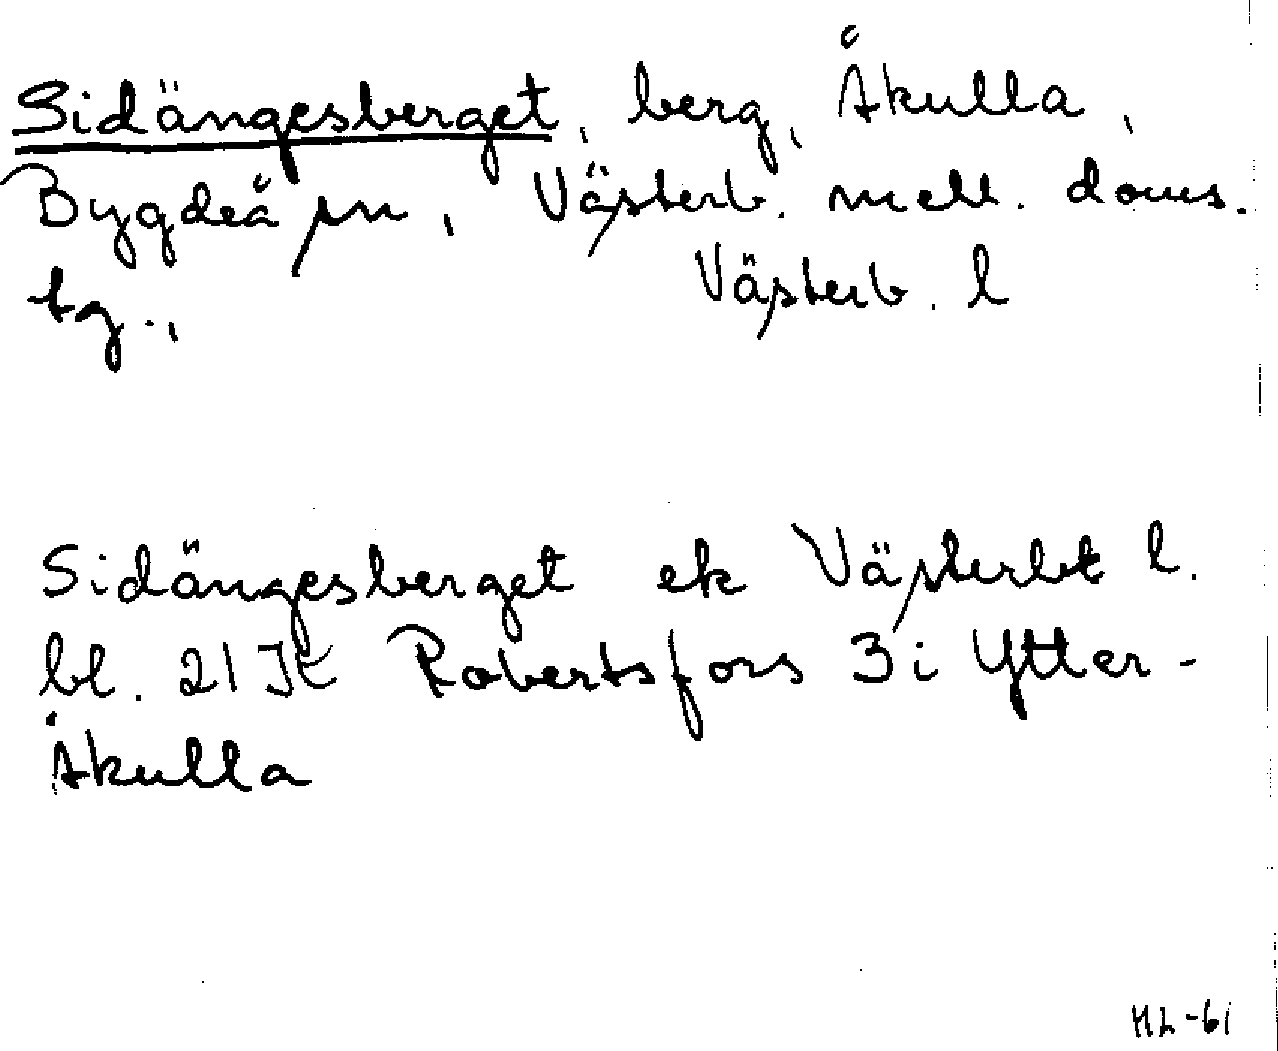 Sidängesberget, berg, Åkulla,
Bygdeå sn, Västerb. mell. doms.
tg., Västerb. l
Sidängesberget ek Västerbt l.
bl. 21 Jt Robertsfors 3 i Ytter-
Åkulla
ML-61